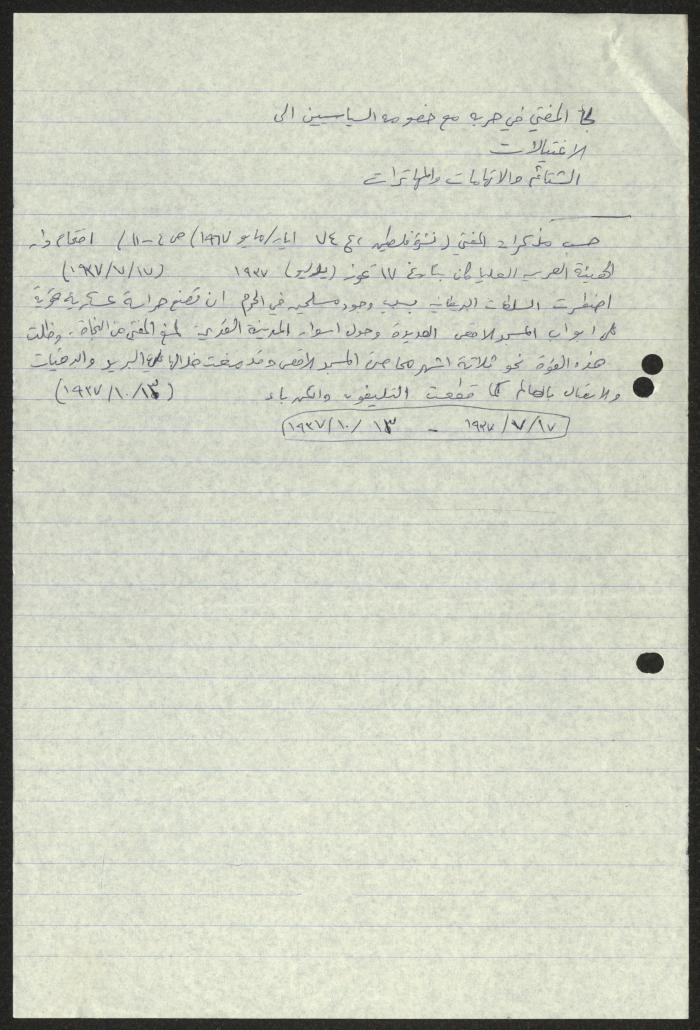 لجأ المفتي في حربه مع خصومه السياسيين الى
الاغتيالات
الشتائم والاتهامات والمهاترات
حسب مذكرات المفتي (نشرة فلسطين، ع ٧٤ ايار/مايو ١٩٦٧ / ص ٤-١١) اقتحام دار
الهيئة العربية العليا كان بتاريخ ١٧ تموز (يوليو) ١٩٣٧ (١٩٣٧/٧/١٧)
اضطرت السلطات البريطانية بسبب وجود مسلمين في الحرم ان تضع حراسة عسكرية قوية
على ابواب المسجد الاقصى العديدة وحول اسوار المدينة القديمة لمنع المفتي من النجاة. وظلت
هذه القوة نحو ثلاثة اشهر محاصرة المسجد الاقصى وقد منعت خلالها البريد والبرقيات
والاتصال بالعالم كما قطعت التليفون والكهرباء (١٩٣٧/١٠/١٣)
١٩٣٧/٧/١٧ - ١٩٣٧/١٠/١٣